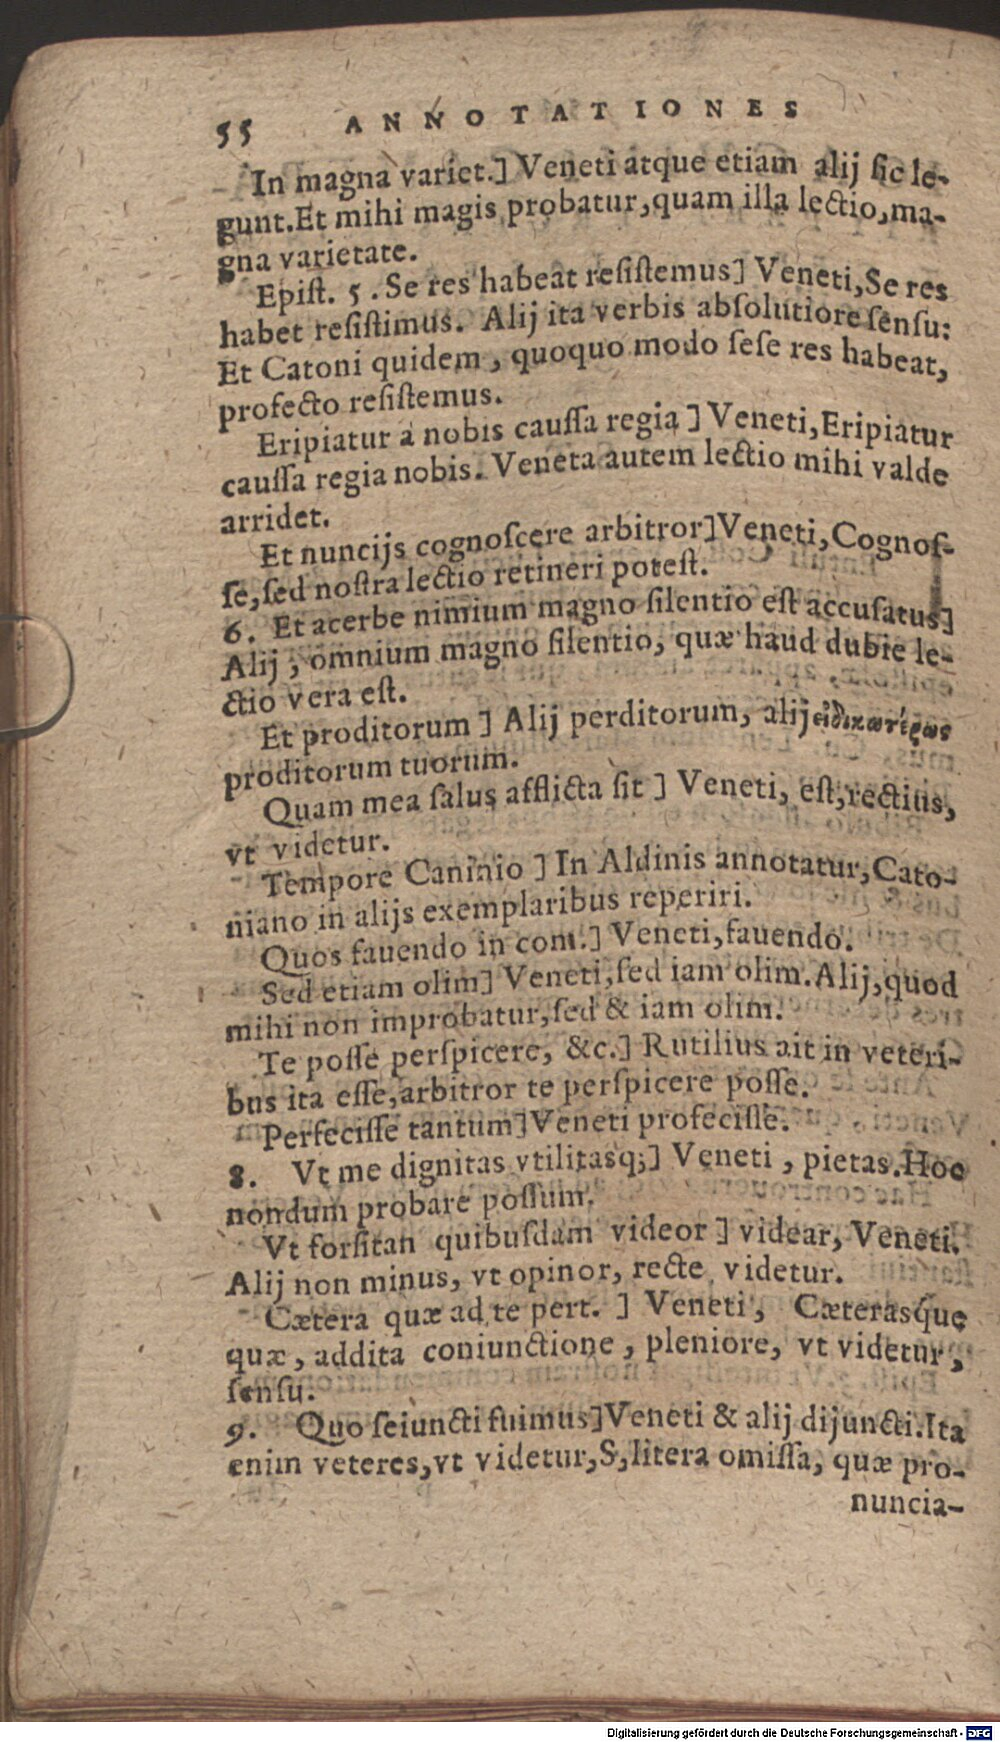 55 ANNOTATIONES
In magna variet.] Veneti atque etiam alij sic le-
gunt. Et mihi magis probatur, quam illa lectio, ma-
gna varietate.
Epist. 5. Se res habeat resistemus] Veneti, Se res
habet resistimus. Alij ita verbis absolutiore sensu:
Et Catoni quidem, quoquo modo sese res habeat,
profecto resistemus.
Eripiatur a nobis caussa regia] Veneti, Eripiatur
caussa regia nobis. Veneta autem lectio mihi valde
arridet.
Et nuncijs cognoscere arbitror] Veneti, Cognos-
se, sed nostra lectio retineri potest.
6. Et acerbe nimium magno silentio est accusatus]
Alij, omnium magno silentio, quæ haud dubie le-
ctio vera est.
Et proditorum] Alij perditorum, alij εἰδικωτέρως
proditorum tuorum.
Quam mea salus afflicta sit] Veneti, est, rectius,
vt videtur.
Tempore Caninio] In Aldinis annotatur, Cato-
niano in alijs exemplaribus reperiri.
Quos fauendo in com.] Veneti, fauendo.
Sed etiam olim] Veneti, sed iam olim. Alij, quod
mihi non improbatur, sed & iam olim.
Te posse perspicere, &c.] Rutilius ait in veteri-
bus ita esse, arbitror te perspicere posse.
Perfecisse tantum] Veneti profecisse.
8. Vt me dignitas vtilitasq;] Veneti, pietas. Hoc
nondum probare possum.
Vt forsitan quibusdam videor] videar, Veneti.
Alij non minus, vt opinor, recte videtur.
Cætera quæ ad te pert.] Veneti, Cæterasque
quæ, addita coniunctione, pleniore, vt videtur,
sensu.
9. Quo seiuncti fuimus] Veneti & alij dijuncti. Ita
enim veteres, vt videtur, S, litera omissa, quæ pro-
nuncia-
Digitalisierung gefördert durch die Deutsche Forschungsgemeinschaft - DFG